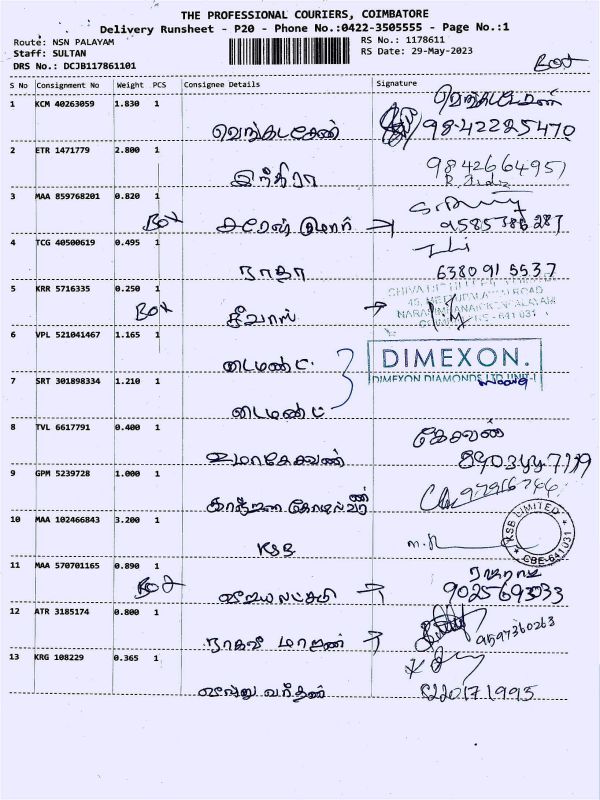 THE PROFESSIONAL COURIERS, COIMBATORE
Delivery Runsheet - P20 - Phone No.:0422-3505555 - Page No.:1
Route: NSN PALAYAM RS No.: 1178611
Staff: SULTAN RS Date: 29-May-2023
DRS No.: DCJB117861101
Box
S No Consignment No Weight PCS Consignee Details Signature
1 KCM 40263059 1.830 1
வெங்கடசேண் 9842225470
2 ETR 1471779 2.800 1
இந்திரா 9842664957
3 MAA 859768201 0.820 1
Box சுரேஷ் குமார் 9585386287
4 TCG 40500619 0.495 1
ராதா 6380915537
5 KRR 5716335 0.250 1
Box ஸ்ரீவாஸ்
6 VPL 521041467 1.165 1
டைமண்ட் DIMEXON.
DIMEXON DIAMONDS LTD UNIT-I
7 SRT 301898334 1.210 1
டைமண்ட்
8 TVL 6617791 0.400 1
கேசவன்
உமாகேசவன்
9 GPM 5239728 1.000 1
10 MAA 102466843 3.200 1
KSB
KSB LIMITED
CBE-641031
11 MAA 570701165 0.890 1
Box விஜயலட்சுமி 9025693033
12 ATR 3185174 0.800 1
9597360263
13 KRG 108229 0.365 1
விஷ்ணு வர்தன்